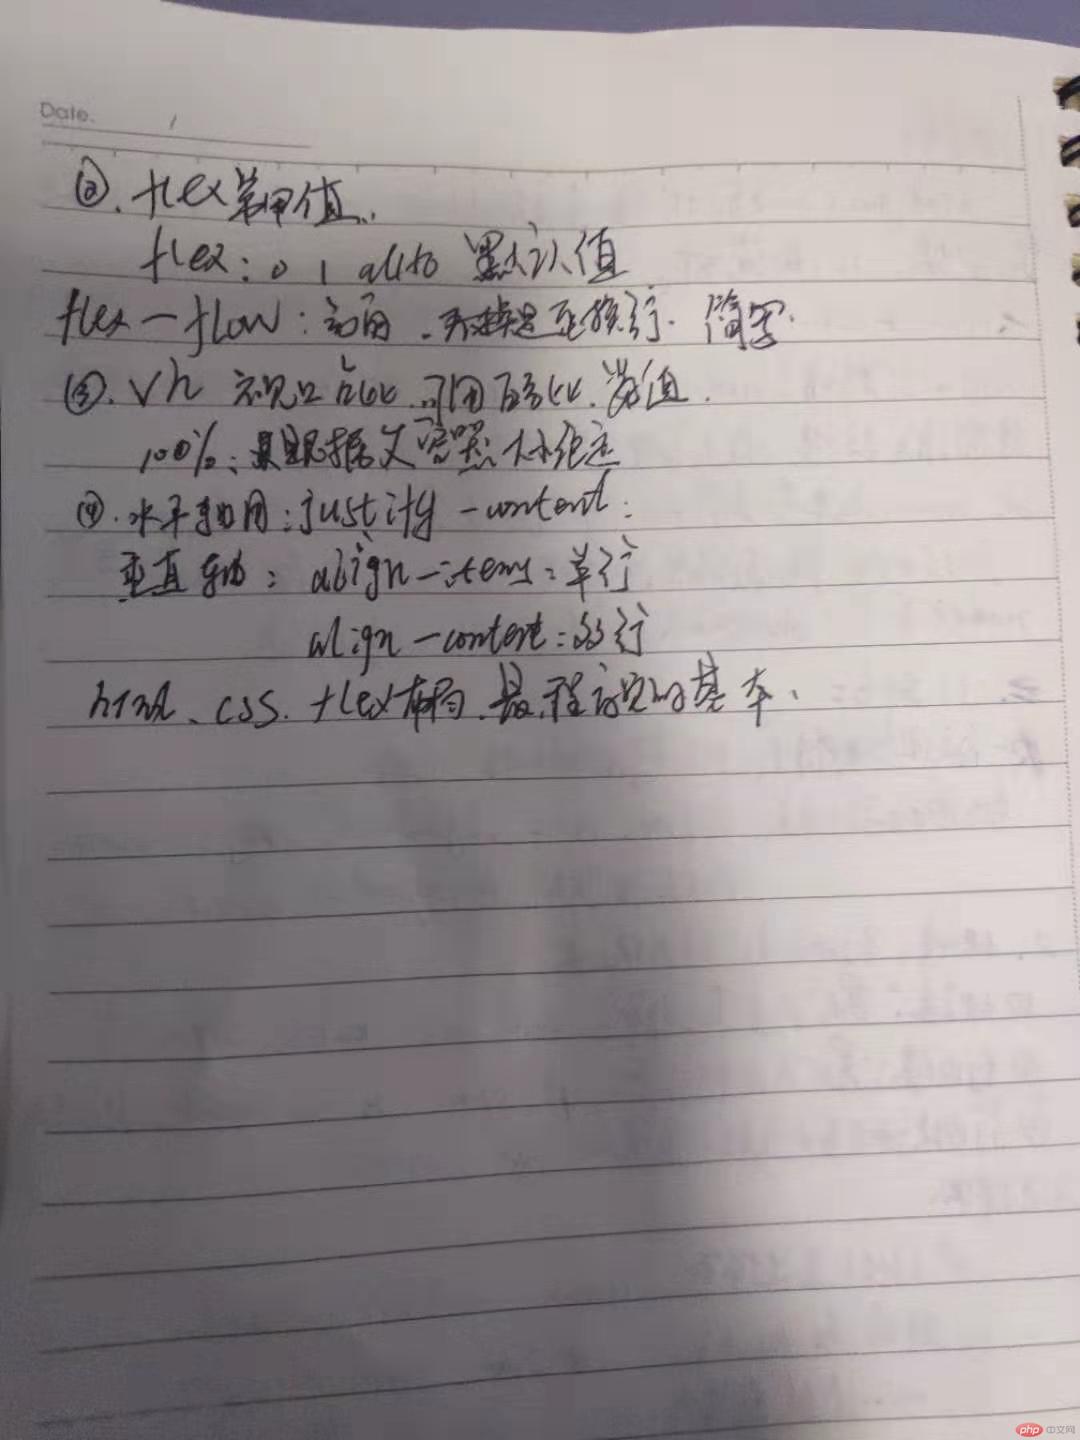 Date.
②. flex常用值.
flex: 0 1 auto 默认值
flex-flow: 方向. 是否换行. 简写.
③. vh 视口占比. 可用百分比. 数值.
100%: 根据父容器大小
④. 水平轴用: justify-content:
垂直轴: align-items: 单行
align-content: 多行
html、css. flex布局. 最 的基本.
php 中文网